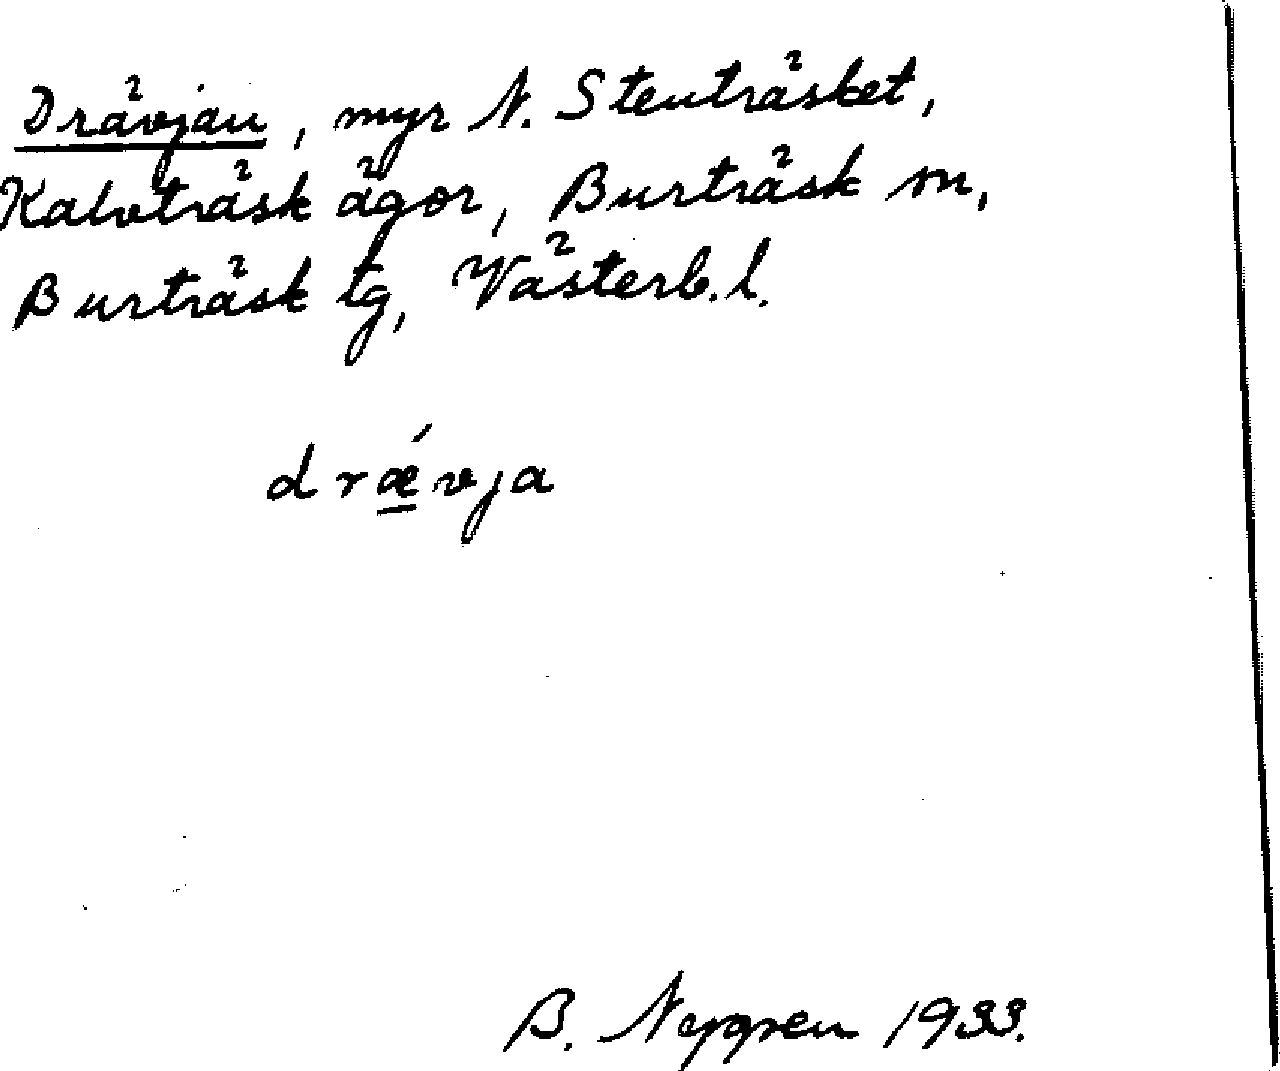 Drävjan, myr N. Stenträsket,
Kalvträsk ägor, Burträsk sn,
Burträsk tg, Västerb. l.
drǽvja
B. Nygren 1933.